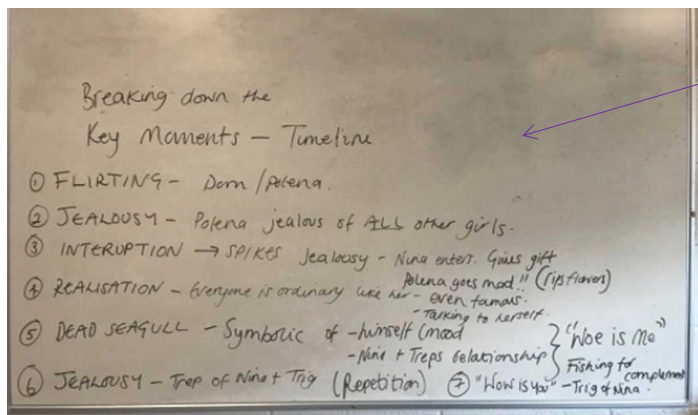 Breaking down the
Key Moments – Timeline
① FLIRTING – Dorn / Polena.
② JEALOUSY – Polena jealous of ALL other girls.
③ INTERUPTION → SPIKES Jealousy – Nina enters. Gives gift
Polena goes mad!! (rips flowers)
④ REALISATION – Everyone is ordinary like her – even famous.
– Talking to herself.
⑤ DEAD SEAGULL – Symbolic of – himself (mood
– Nina + Treps relationship
} "Woe is Me"
Fishing for complement
⑥ JEALOUSY – Trep of Nina + Trig (Repetition)
⑦ "Wow is you" – Trig of Nina.